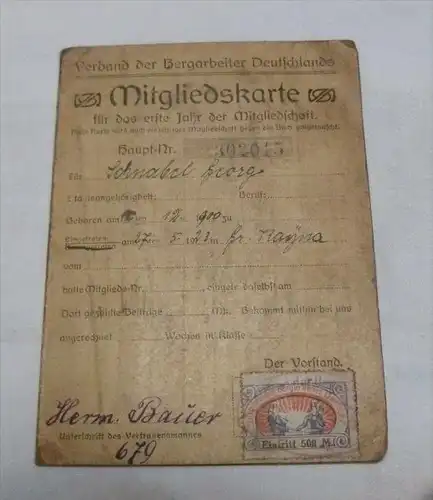 Verband der Bergarbeiter Deutschlands
Mitgliedskarte
für das erste Jahr der Mitgliedschaft.
Haupt-Nr.
Für Schnabel Georg
Staatsangehörigkeit: Beruf:
Geboren am 12 zu
Eingetreten am 27 5 in Gr. Kayna
vom
hatte Mitglieds-Nr. eingetr. daselbst am
Dort gezahlte Beiträge Mk. Bekommt mithin bei uns
angerechnet Wochen Klasse
Der Vorstand.
Herm. Bauer
Unterschrift des Vertrauensmannes
679
Eintritt 500 M.